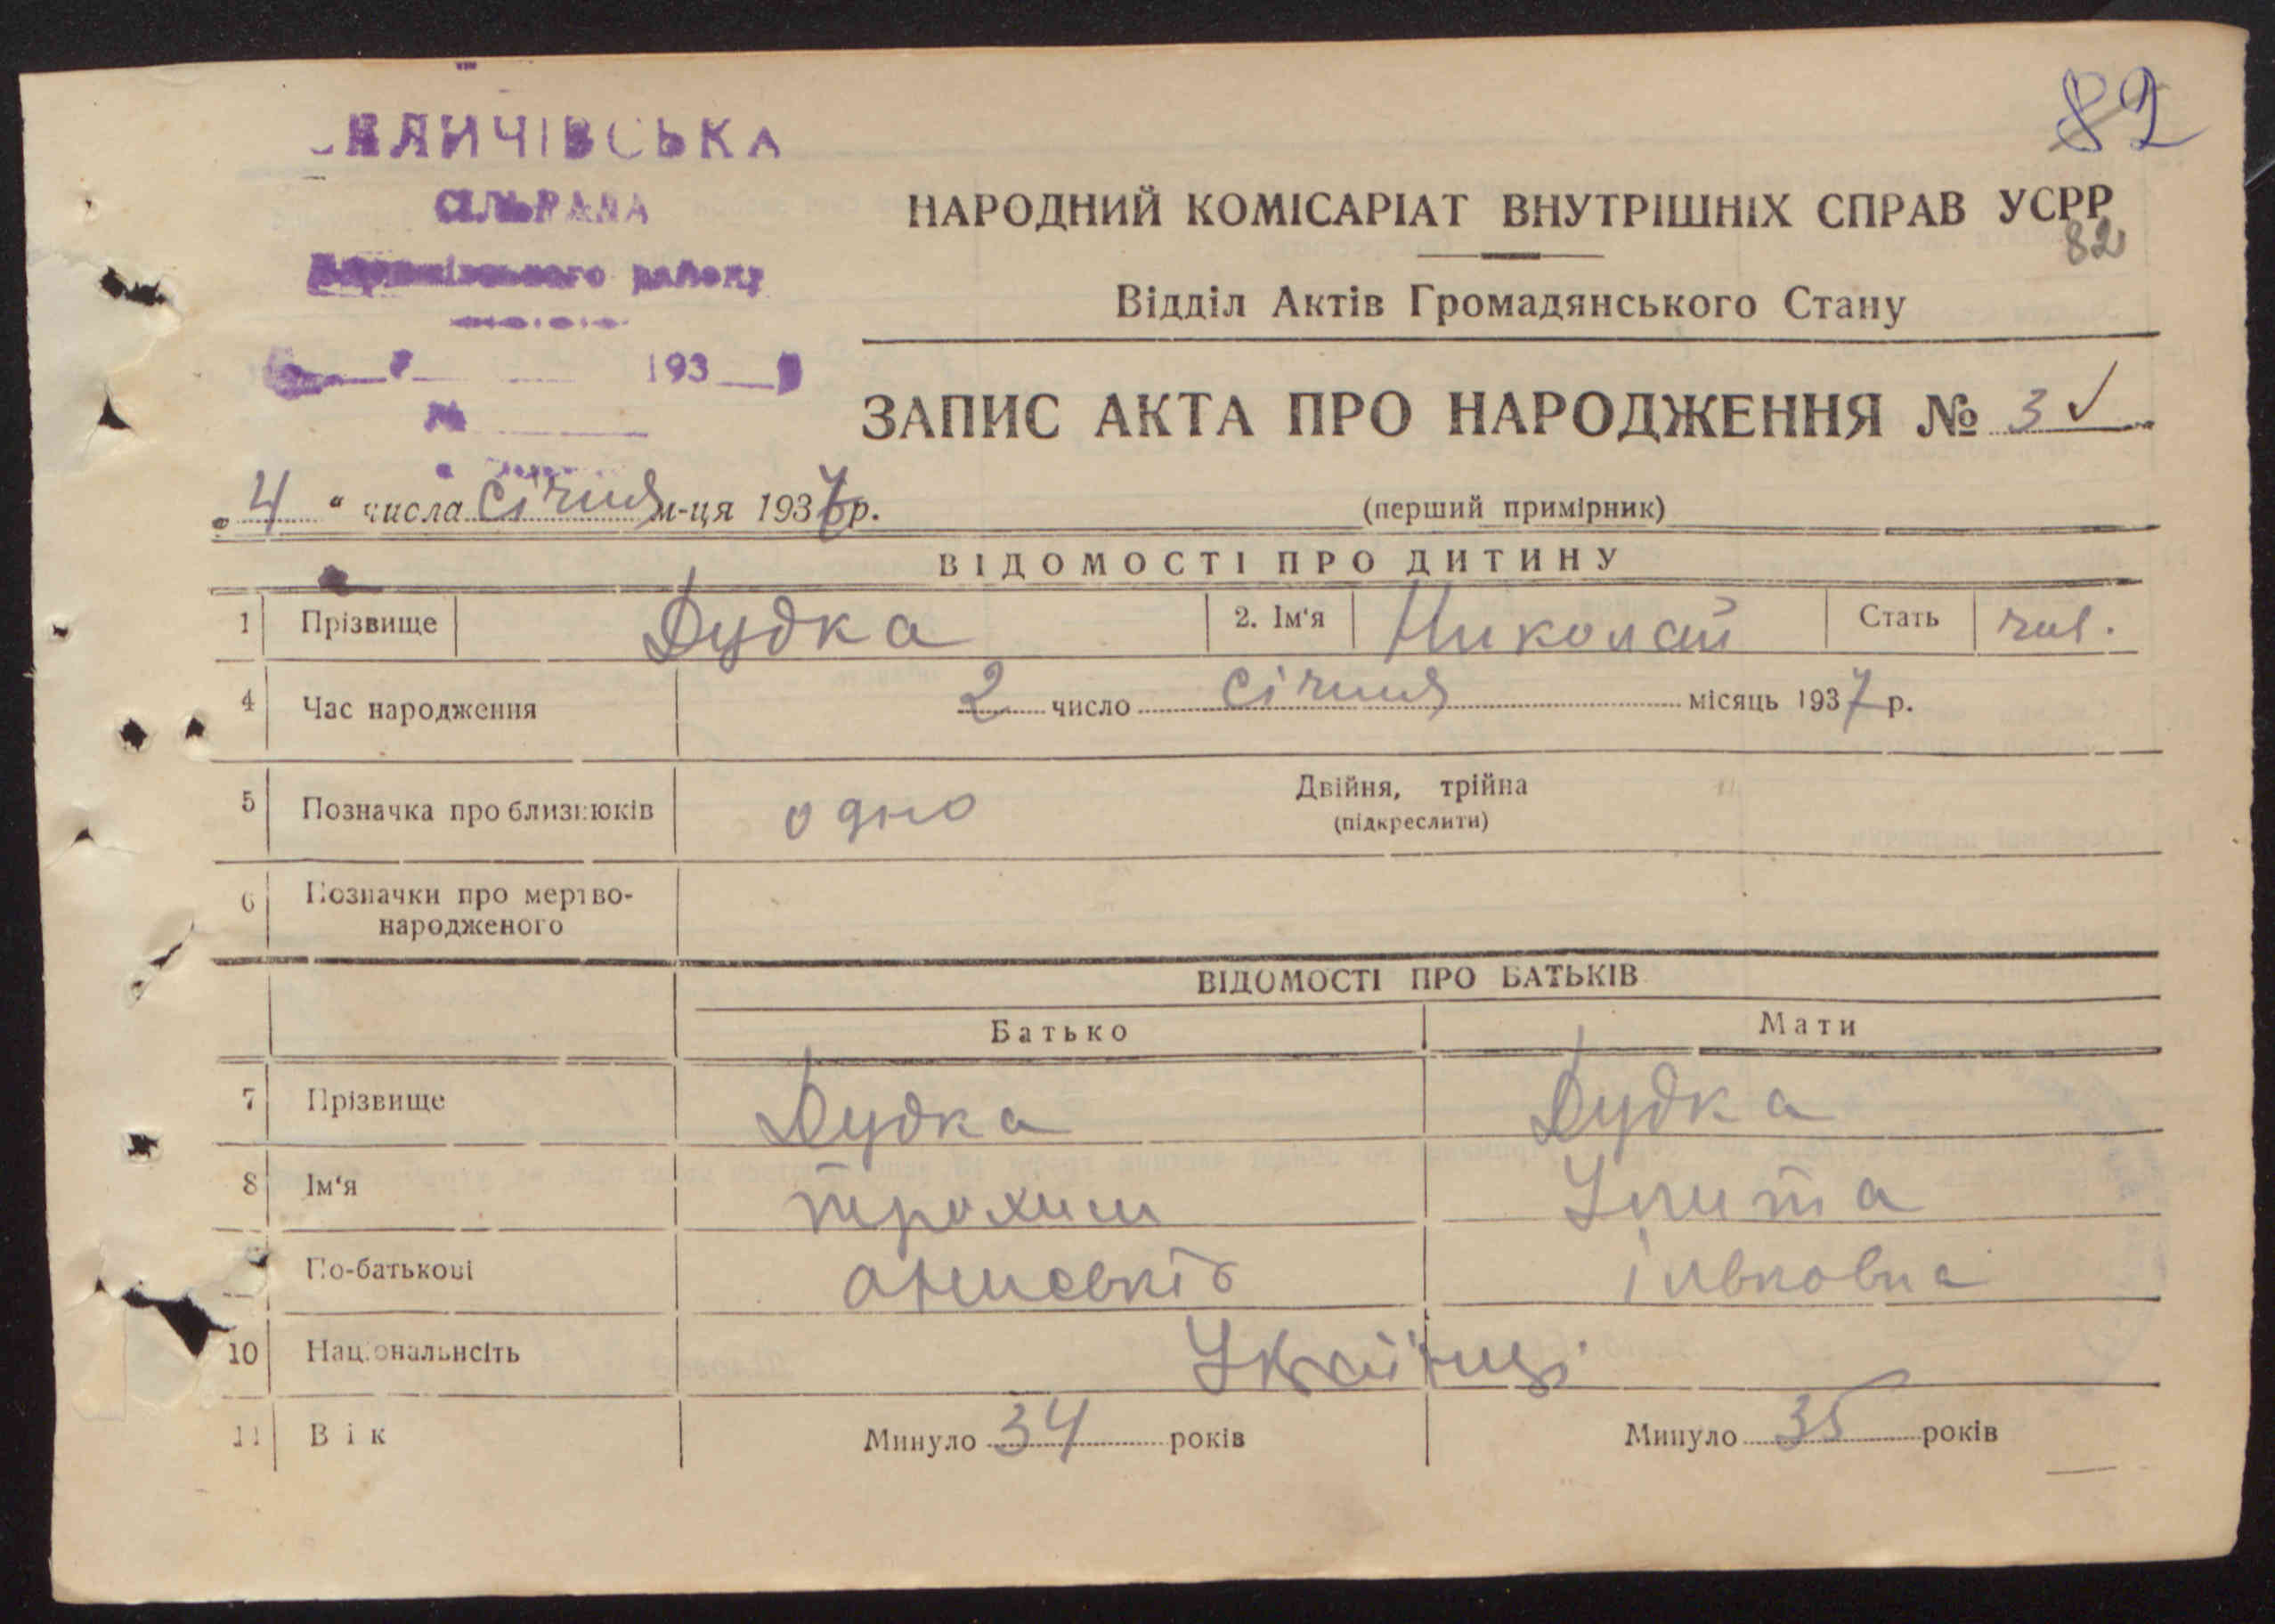 82
СІЛЬРАДА
району
НАРОДНИЙ КОМІСАРІАТ ВНУТРІШНІХ СПРАВ УСРР
82
Відділ Актів Громадянського Стану
193
№
ЗАПИС АКТА ПРО НАРОДЖЕННЯ № 3
„4“ числа січня м-ця 1937р.
(перший примірник)
ВІДОМОСТІ ПРО ДИТИНУ
1 Прізвище Дудка 2. Ім'я Николай Стать чол.
4 Час народження 2 число січня місяць 1937 р.
5 Позначка про близнюків одно Двійня, трійна
(підкреслити)
6 Позначки про мертво-
народженого
ВІДОМОСТІ ПРО БАТЬКІВ
Батько Мати
7 Прізвище Дудка Дудка
8 Ім'я Трохим Улита
По-батькові Ільковна
10 Національнсіть Українці
11 Вік Минуло 34 років Минуло 35 років